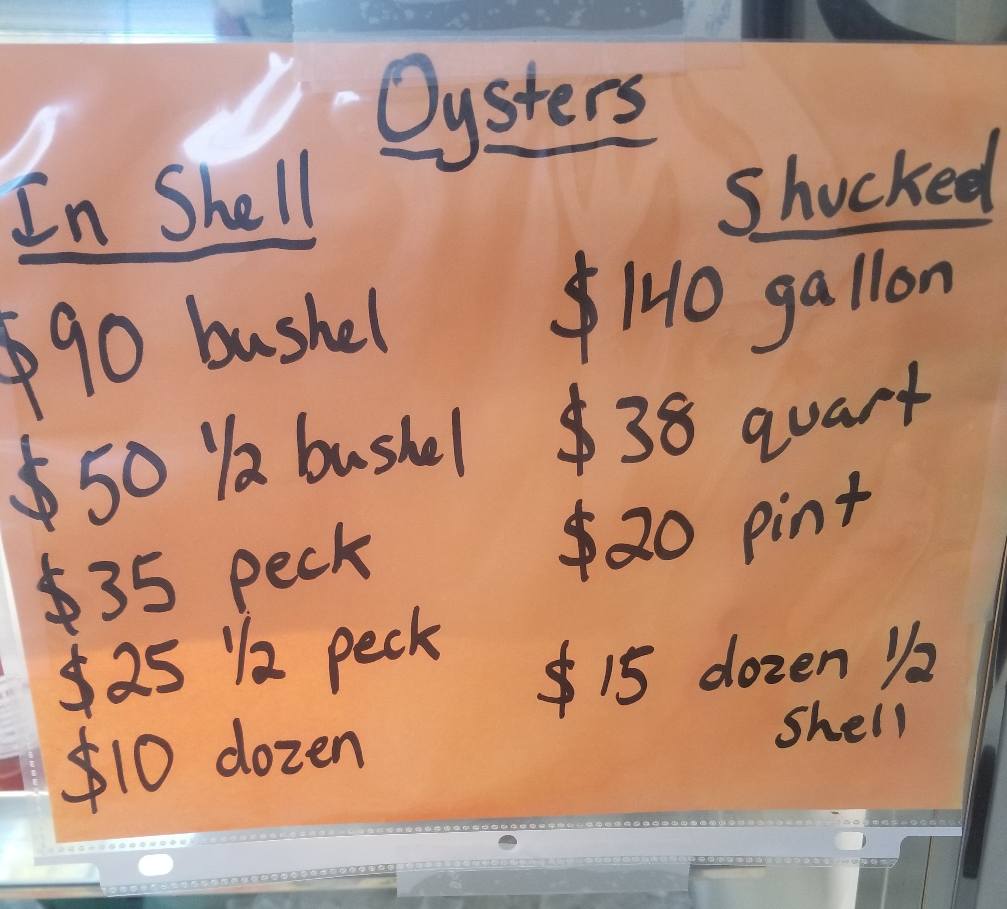 Oysters
In Shell
$90 bushel
$50 1/2 bushel
$35 peck
$25 1/2 peck
$10 dozen
Shucked
$140 gallon
$38 quart
$20 pint
$15 dozen 1/2
shell